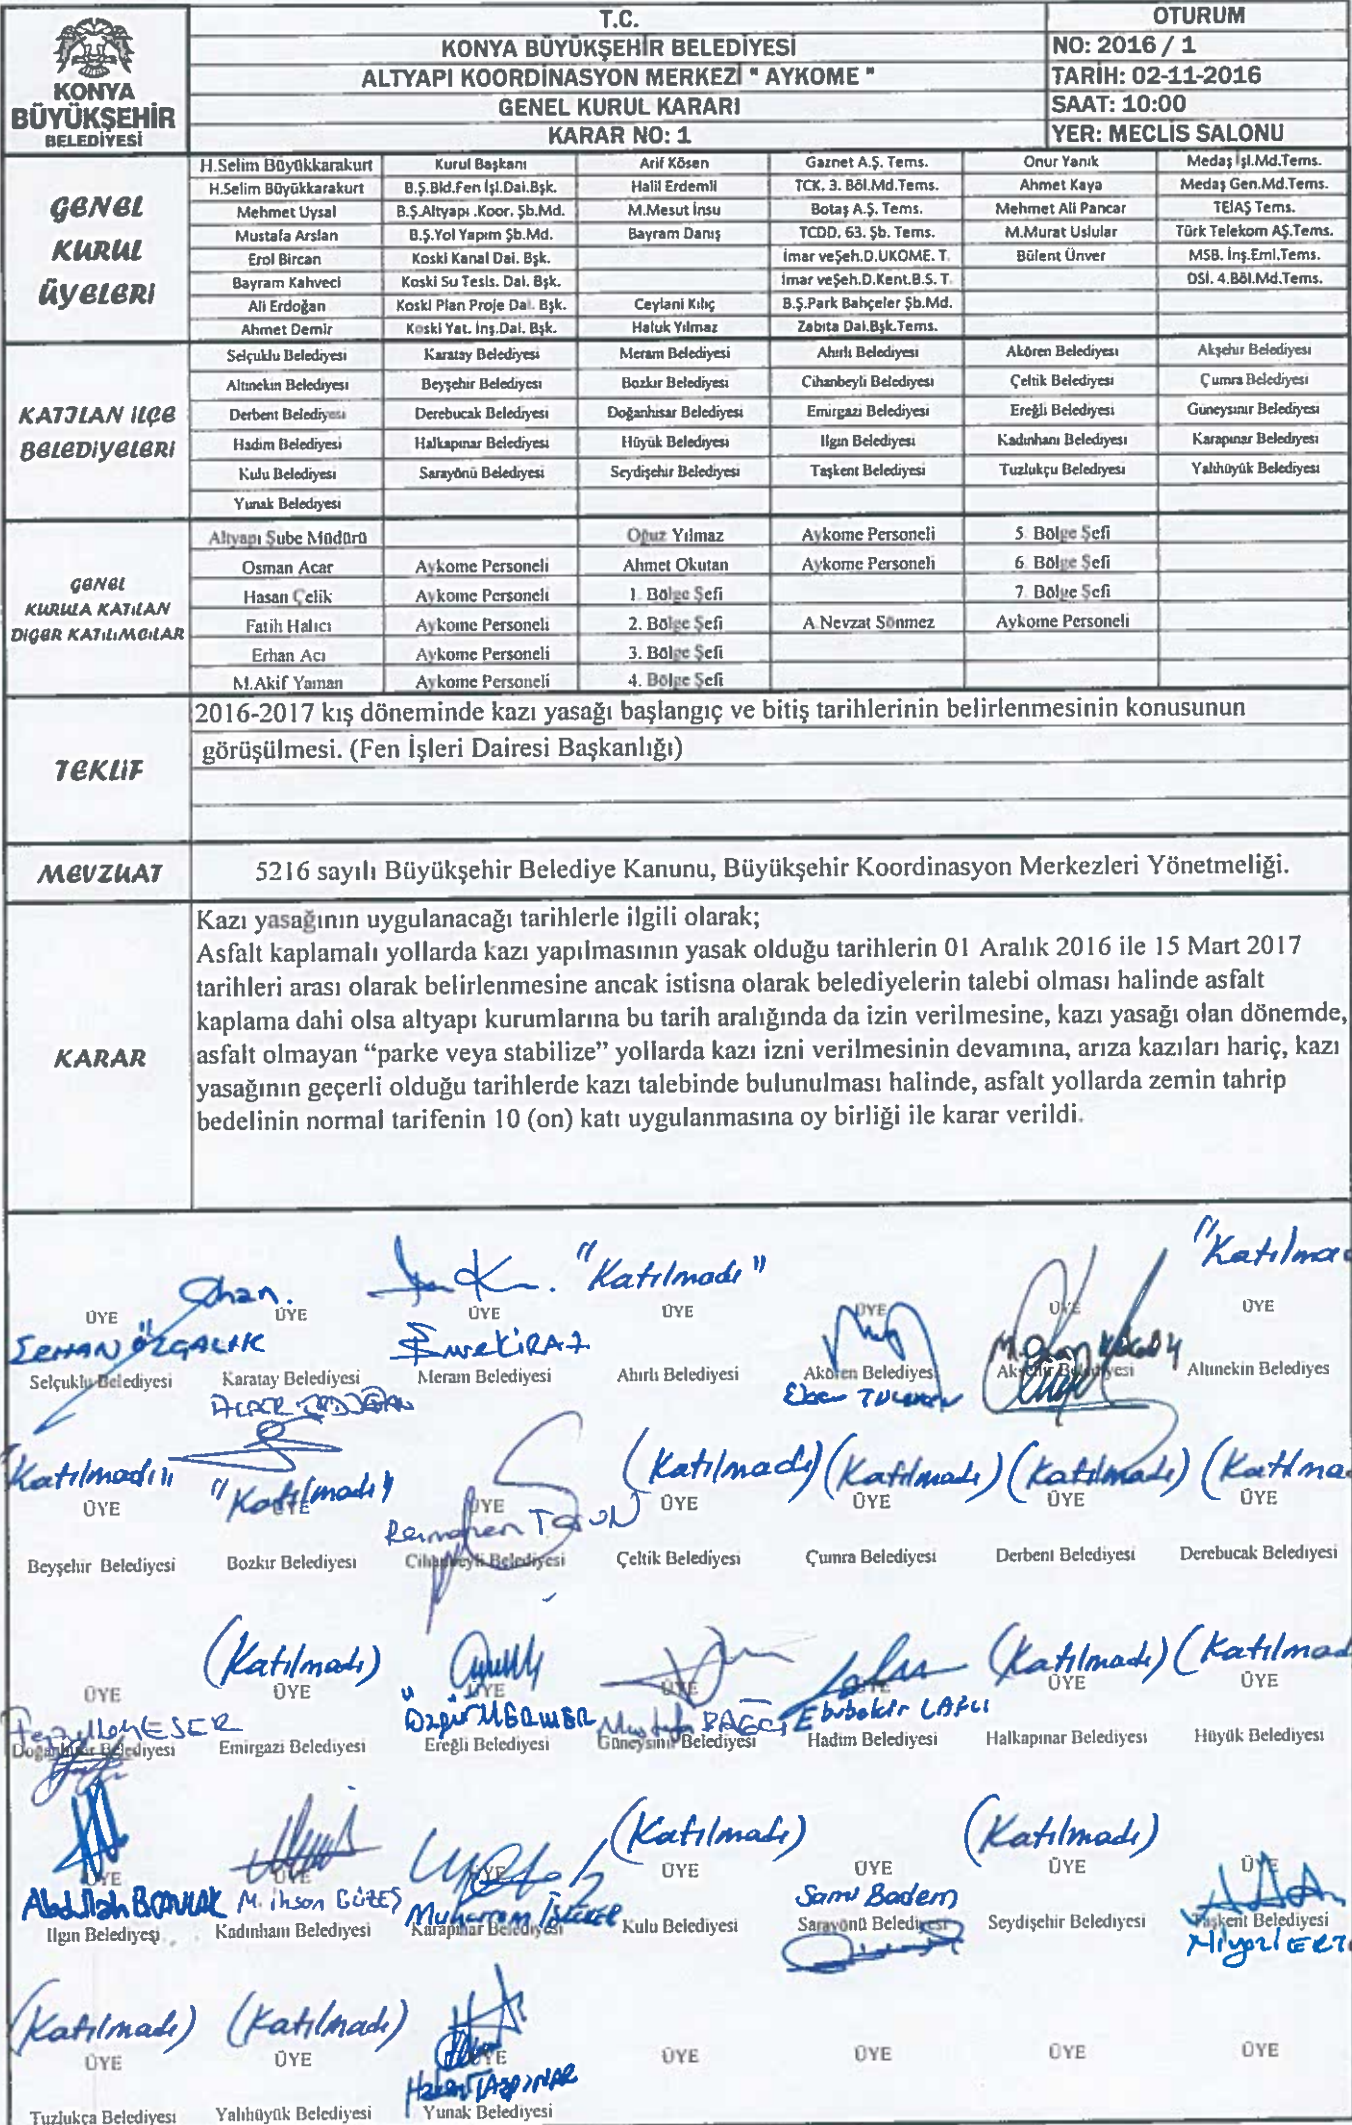 KONYA
BÜYÜKŞEHİR
BELEDİYESİ
T.C.
KONYA BÜYÜKŞEHİR BELEDİYESİ
ALTYAPI KOORDİNASYON MERKEZİ " AYKOME "
GENEL KURUL KARARI
KARAR NO: 1
OTURUM
NO: 2016 / 1
TARİH: 02-11-2016
SAAT: 10:00
YER: MECLİS SALONU
GENEL
KURUL
ÜYELERİ
H.Selim Büyükkarakurt Kurul Başkanı Arif Kösen Gaznet A.Ş. Tems. Onur Yanık Medaş İşl.Md.Tems.
H.Selim Büyükkarakurt B.Ş.Bld.Fen İşl.Dai.Bşk. Halil Erdemli TCK. 3. Böl.Md.Tems. Ahmet Kaya Medaş Gen.Md.Tems.
Mehmet Uysal B.Ş.Altyapı .Koor. Şb.Md. M.Mesut İnsu Botaş A.Ş. Tems. Mehmet Ali Pancar TEİAŞ Tems.
Mustafa Arslan B.Ş.Yol Yapım Şb.Md. Bayram Danış TCDD. 63. Şb. Tems. M.Murat Uslular Türk Telekom AŞ.Tems.
Erol Bircan Koski Kanal Dai. Bşk. İmar veŞeh.D.UKOME. T. Bülent Ünver MSB. İnş.Eml.Tems.
Bayram Kahveci Koski Su Tesis. Dai. Bşk. İmar veŞeh.D.Kent.B.S. T. DSİ. 4.Böl.Md.Tems.
Ali Erdoğan Koski Plan Proje Dai. Bşk. Ceylani Kılıç B.Ş.Park Bahçeler Şb.Md.
Ahmet Demir Koski Yat. İnş.Dai. Bşk. Haluk Yılmaz Zabıta Dai.Bşk.Tems.
KATILAN İLÇE
BELEDİYELERİ
Selçuklu Belediyesi Karatay Belediyesi Meram Belediyesi Ahırlı Belediyesi Akören Belediyesi Akşehir Belediyesi
Altınekin Belediyesi Beyşehir Belediyesi Bozkır Belediyesi Cihanbeyli Belediyesi Çeltik Belediyesi Çumra Belediyesi
Derbent Belediyesi Derebucak Belediyesi Doğanhisar Belediyesi Emirgazi Belediyesi Ereğli Belediyesi Güneysınır Belediyesi
Hadim Belediyesi Halkapınar Belediyesi Hüyük Belediyesi Ilgın Belediyesi Kadınhanı Belediyesi Karapınar Belediyesi
Kulu Belediyesi Sarayönü Belediyesi Seydişehir Belediyesi Taşkent Belediyesi Tuzlukçu Belediyesi Yalıhüyük Belediyesi
Yunak Belediyesi
GENEL
KURULA KATILAN
DİĞER KATILIMCILAR
Altyapı Şube Müdürü Oğuz Yılmaz Aykome Personeli 5. Bölge Şefi
Osman Acar Aykome Personeli Ahmet Okutan Aykome Personeli 6. Bölge Şefi
Hasan Çelik Aykome Personeli 1. Bölge Şefi 7. Bölge Şefi
Fatih Halıcı Aykome Personeli 2. Bölge Şefi A.Nevzat Sönmez Aykome Personeli
Erhan Acı Aykome Personeli 3. Bölge Şefi
M.Akif Yaman Aykome Personeli 4. Bölge Şefi
TEKLİF
2016-2017 kış döneminde kazı yasağı başlangıç ve bitiş tarihlerinin belirlenmesinin konusunun
görüşülmesi. (Fen İşleri Dairesi Başkanlığı)
MEVZUAT
5216 sayılı Büyükşehir Belediye Kanunu, Büyükşehir Koordinasyon Merkezleri Yönetmeliği.
KARAR
Kazı yasağının uygulanacağı tarihlerle ilgili olarak;
Asfalt kaplamalı yollarda kazı yapılmasının yasak olduğu tarihlerin 01 Aralık 2016 ile 15 Mart 2017
tarihleri arası olarak belirlenmesine ancak istisna olarak belediyelerin talebi olması halinde asfalt
kaplama dahi olsa altyapı kurumlarına bu tarih aralığında da izin verilmesine, kazı yasağı olan dönemde,
asfalt olmayan “parke veya stabilize” yollarda kazı izni verilmesinin devamına, arıza kazıları hariç, kazı
yasağının geçerli olduğu tarihlerde kazı talebinde bulunulması halinde, asfalt yollarda zemin tahrip
bedelinin normal tarifenin 10 (on) katı uygulanmasına oy birliği ile karar verildi.
"Katılmadı" "Katılma
ÜYE ÜYE ÜYE ÜYE ÜYE ÜYE ÜYE
Selçuklu Belediyesi Karatay Belediyesi Meram Belediyesi Ahırlı Belediyesi Akören Belediyesi Akşehir Belediyesi Altınekin Belediyes
Katılmadı" "Katılmadı" (Katılmadı) (Katılmadı) (Katılmadı) (Katılma
ÜYE ÜYE ÜYE ÜYE ÜYE ÜYE ÜYE
Beyşehir Belediyesi Bozkır Belediyesi Cihanbeyli Belediyesi Çeltik Belediyesi Çumra Belediyesi Derbent Belediyesi Derebucak Belediyesi
(Katılmadı) (Katılmadı) (Katılmad
ÜYE ÜYE ÜYE ÜYE ÜYE ÜYE ÜYE
Mustafa BAĞCI
Doğanhisar Belediyesi Emirgazi Belediyesi Ereğli Belediyesi Güneysınır Belediyesi Hadim Belediyesi Halkapınar Belediyesi Hüyük Belediyesi
(Katılmadı) (Katılmadı)
ÜYE ÜYE ÜYE ÜYE ÜYE ÜYE ÜYE
M. ihsan Sami Badem
Ilgın Belediyesi Kadınhanı Belediyesi Karapınar Belediyesi Kulu Belediyesi Sarayönü Belediyesi Seydişehir Belediyesi Taşkent Belediyesi
(Katılmadı) (Katılmadı)
ÜYE ÜYE ÜYE ÜYE ÜYE ÜYE ÜYE
Tuzlukça Belediyesi Yalıhüyük Belediyesi Yunak Belediyesi